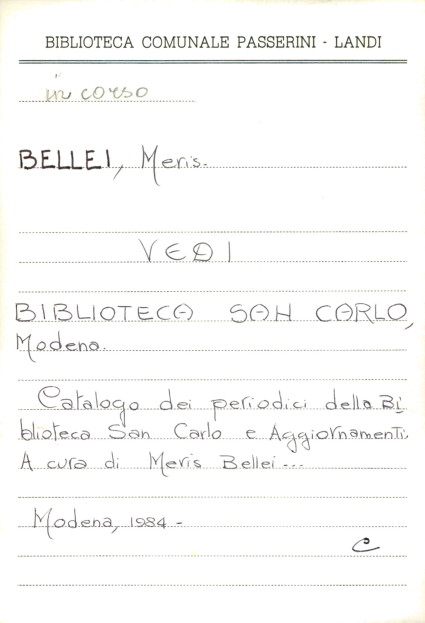 BIBLIOTECA COMUNALE PASSERINI - LANDI
in corso
BELLEI, Meris.
VEDI
BIBLIOTECA SAN CARLO,
Modena.
Catalogo dei periodici della Bi
blioteca San Carlo e Aggiornamenti.
A cura di Meris Bellei...
Modena, 1984 -
C